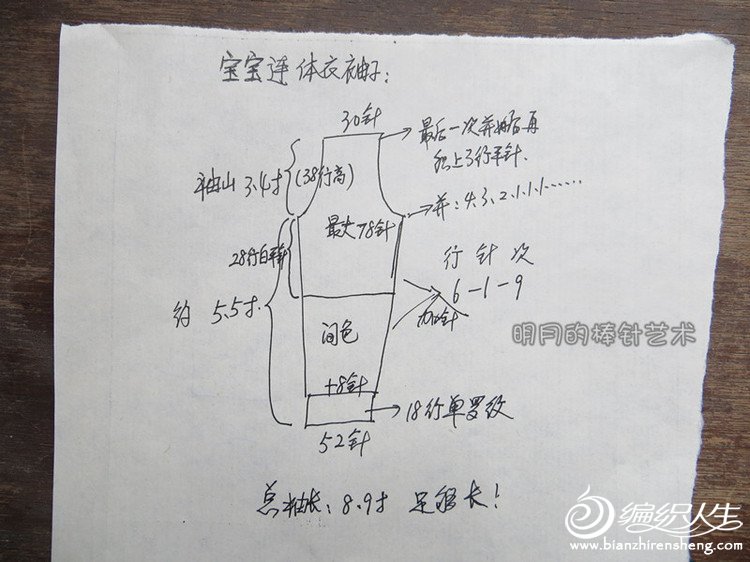 宝宝连体衣袖子：
30针
最后一次并收后再
织上3行平针.
袖山 3.4寸
(38行高)
并：4.3.2.1.1.1......
最大78针
28行白平针
行 针 次
6-1-9
加针
约 5.5寸
间色
明月的棒针艺术
+8针
18行单罗纹
52针
总袖长：8.9寸 足够长！
编织人生
www.bianzhirensheng.com